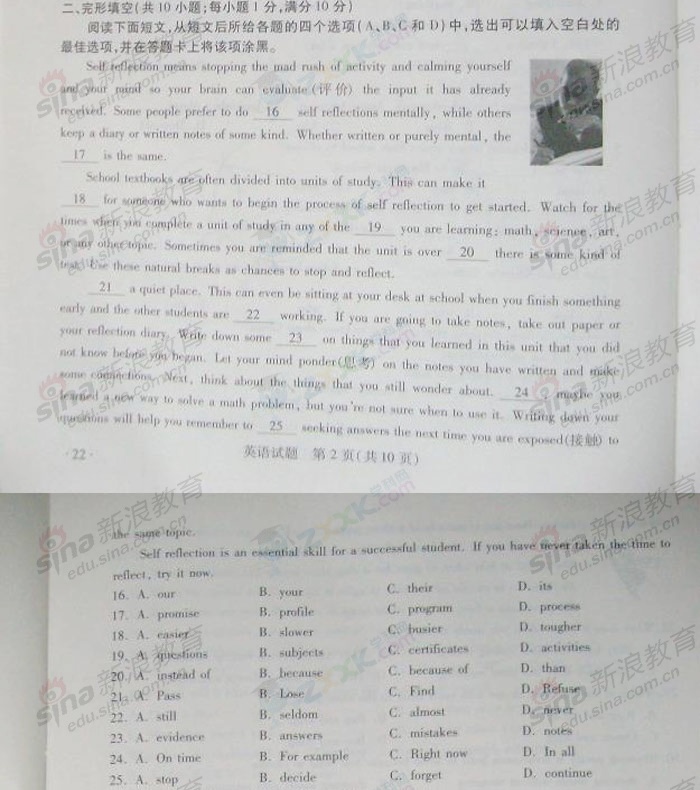 二、完形填空(共10小题;每小题1分,满分10分)
阅读下面短文,从短文后所给各题的四个选项(A、B、C和D)中,选出可以填入空白处的
最佳选项,并在答题卡上将该项涂黑。
Self reflection means stopping the mad rush of activity and calming yourself
and your mind so your brain can evaluate(评价) the input it has already
received. Some people prefer to do 16 self reflections mentally, while others
keep a diary or written notes of some kind. Whether written or purely mental, the
17 is the same.
School textbooks are often divided into units of study. This can make it
18 for someone who wants to begin the process of self reflection to get started. Watch for the
times when you complete a unit of study in any of the 19 you are learning: math, science, art,
or any other topic. Sometimes you are reminded that the unit is over 20 there is some kind of
test. Use these natural breaks as chances to stop and reflect.
21 a quiet place. This can even be sitting at your desk at school when you finish something
early and the other students are 22 working. If you are going to take notes, take out paper or
your reflection diary. Write down some 23 on things that you learned in this unit that you did
not know before you began. Let your mind ponder(思考) on the notes you have written and make
some connections. Next, think about the things that you still wonder about. 24, maybe you
learned a new way to solve a math problem, but you're not sure when to use it. Writing down your
questions will help you remember to 25 seeking answers the next time you are exposed(接触) to
·22· 英语试题 第2页(共10页)
the same topic.
Self reflection is an essential skill for a successful student. If you have never taken the time to
reflect, try it now.
16. A. our B. your C. their D. its
17. A. promise B. profile C. program D. process
18. A. easier B. slower C. busier D. tougher
19. A. questions B. subjects C. certificates D. activities
20. A. instead of B. because C. because of D. than
21. A. Pass B. Lose C. Find D. Refuse
22. A. still B. seldom C. almost D. never
23. A. evidence B. answers C. mistakes D. notes
24. A. On time B. For example C. Right now D. In all
25. A. stop B. decide C. forget D. continue
sina 新浪教育
edu.sina.com.cn